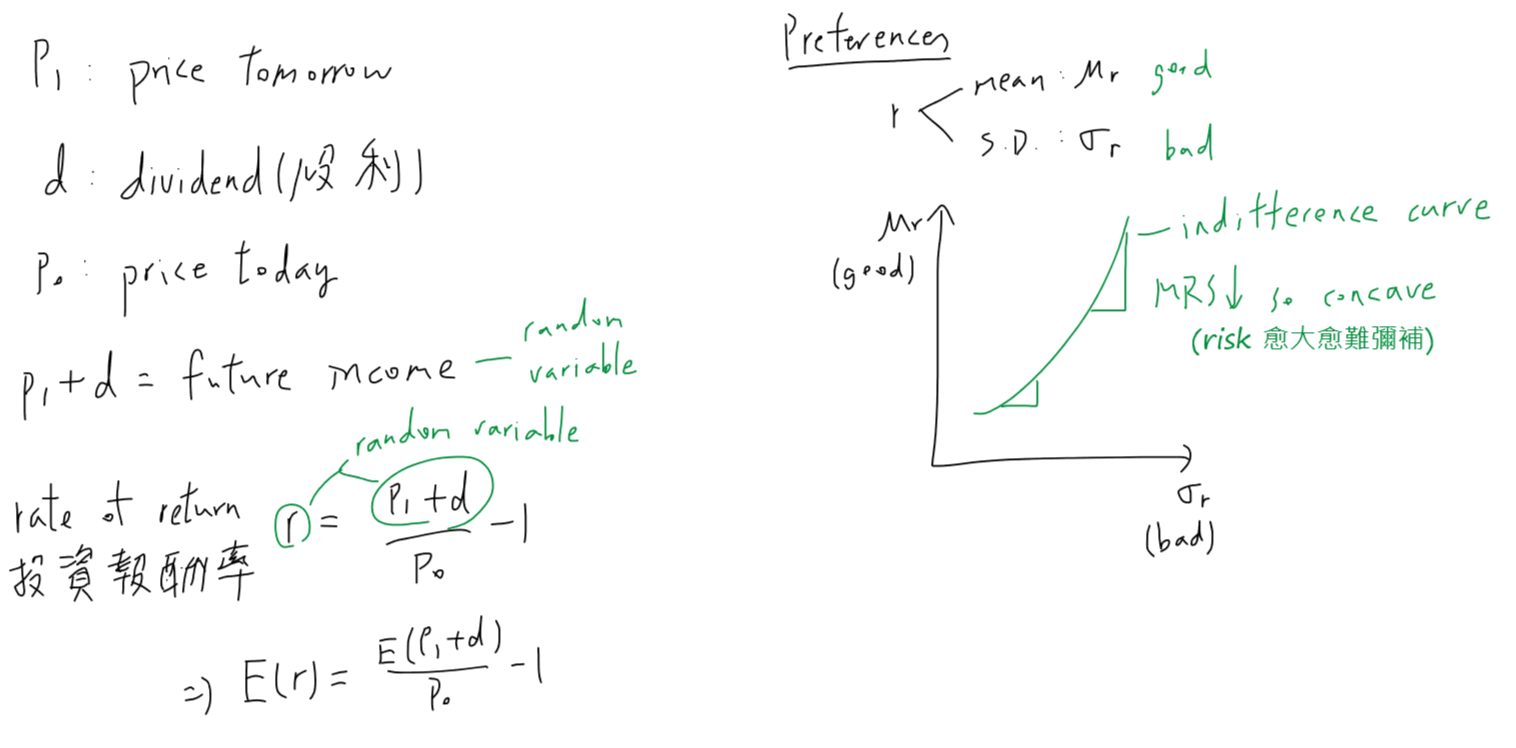 P₁ : price tomorrow
d : dividend (股利)
P₀ : price today
P₁ + d = future income — random variable
random variable
rate of return
投資報酬率
r = (P₁ + d) / P₀ - 1
⇒ E(r) = E(P₁ + d) / P₀ - 1
Preferences
r < mean : μr good
S.D. : σr bad
μr
(good)
indifference curve
MRS↓ so concave
(risk 愈大愈難彌補)
σr
(bad)